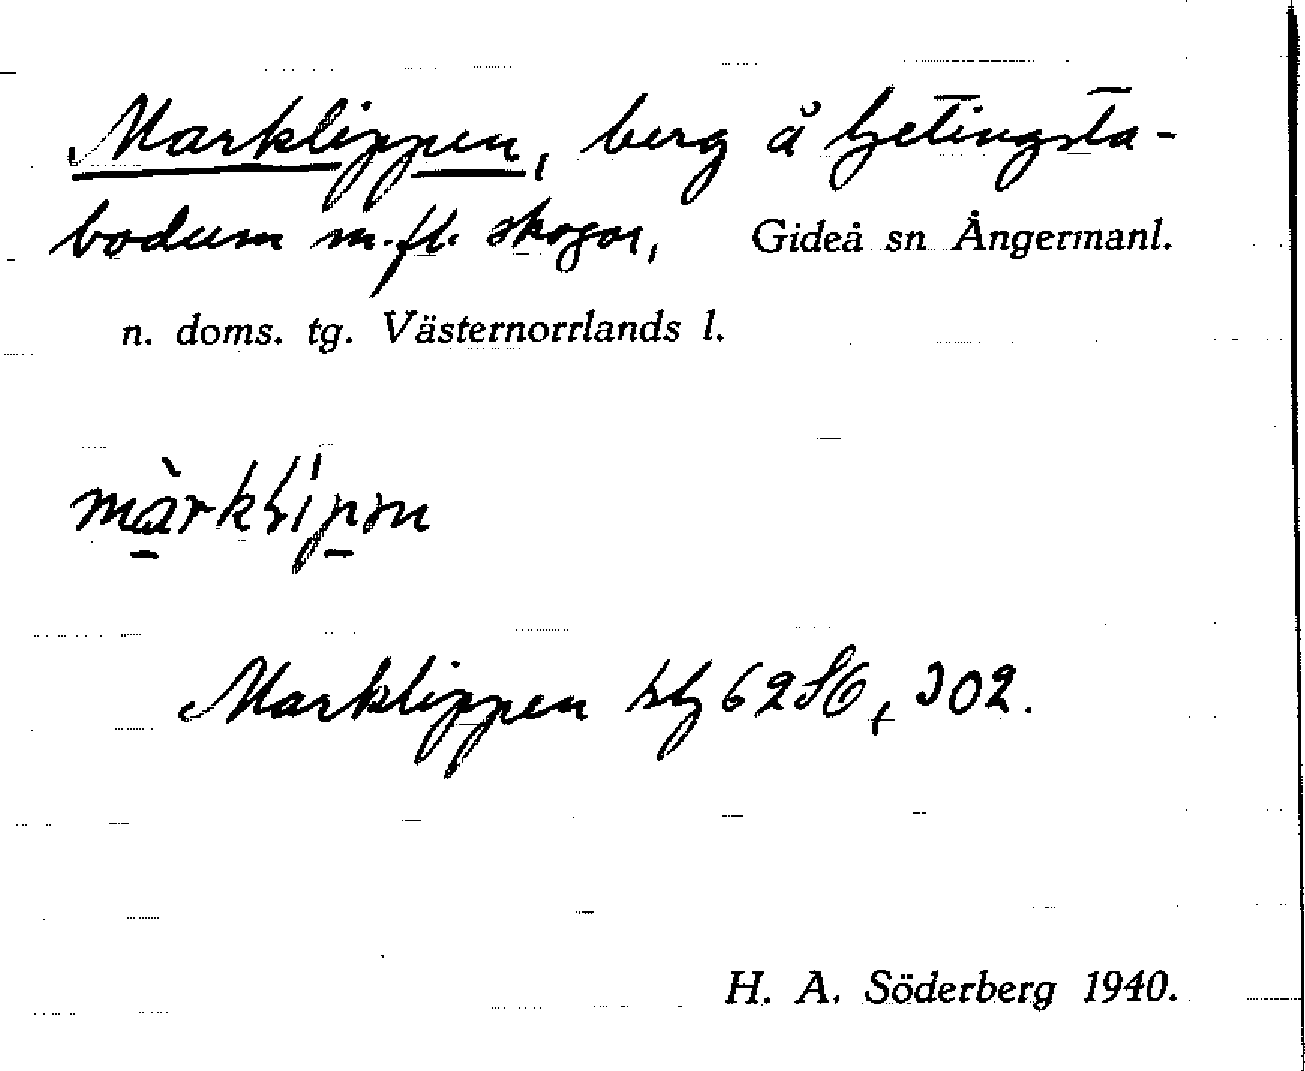 Marklippen, berg å Getingsta-
bodum m.fl. skogar, Gideå sn Ångermanl.
n. doms. tg. Västernorrlands l.
Marklippen bl 62 SO, 302.
H. A. Söderberg 1940.